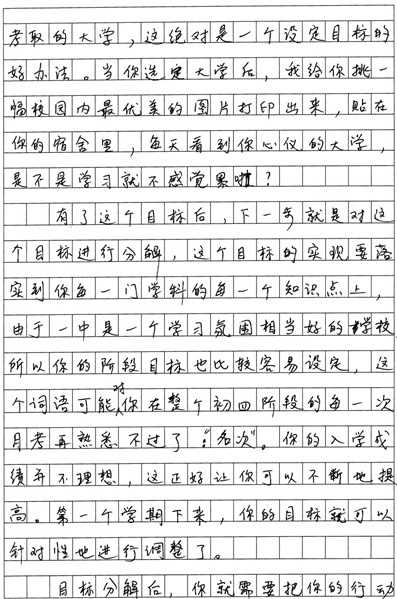 考取的大学，这绝对是一个设定目标的
好办法。当你选定大学后，我给你挑一
幅校园内最优美的图片打印出来，贴在
你的宿舍里，每天看到你心仪的大学，
是不是学习就不感觉累啦？
有了这个目标后，下一步就是对这
个目标进行分解，这个目标的实现要落
实到你每一门学科的每一个知识点上，
由于一中是一个学习氛围相当好的学校
所以你的阶段目标也比较容易设定，这
个词语可能对你在整个初四阶段的每一次
月考再熟悉不过了：“名次”。你的入学成
绩并不理想，这正好让你可以不断地提
高。第一个学期下来，你的目标就可以
针对性地进行调整了。
目标分解后，你就需要把你的行动